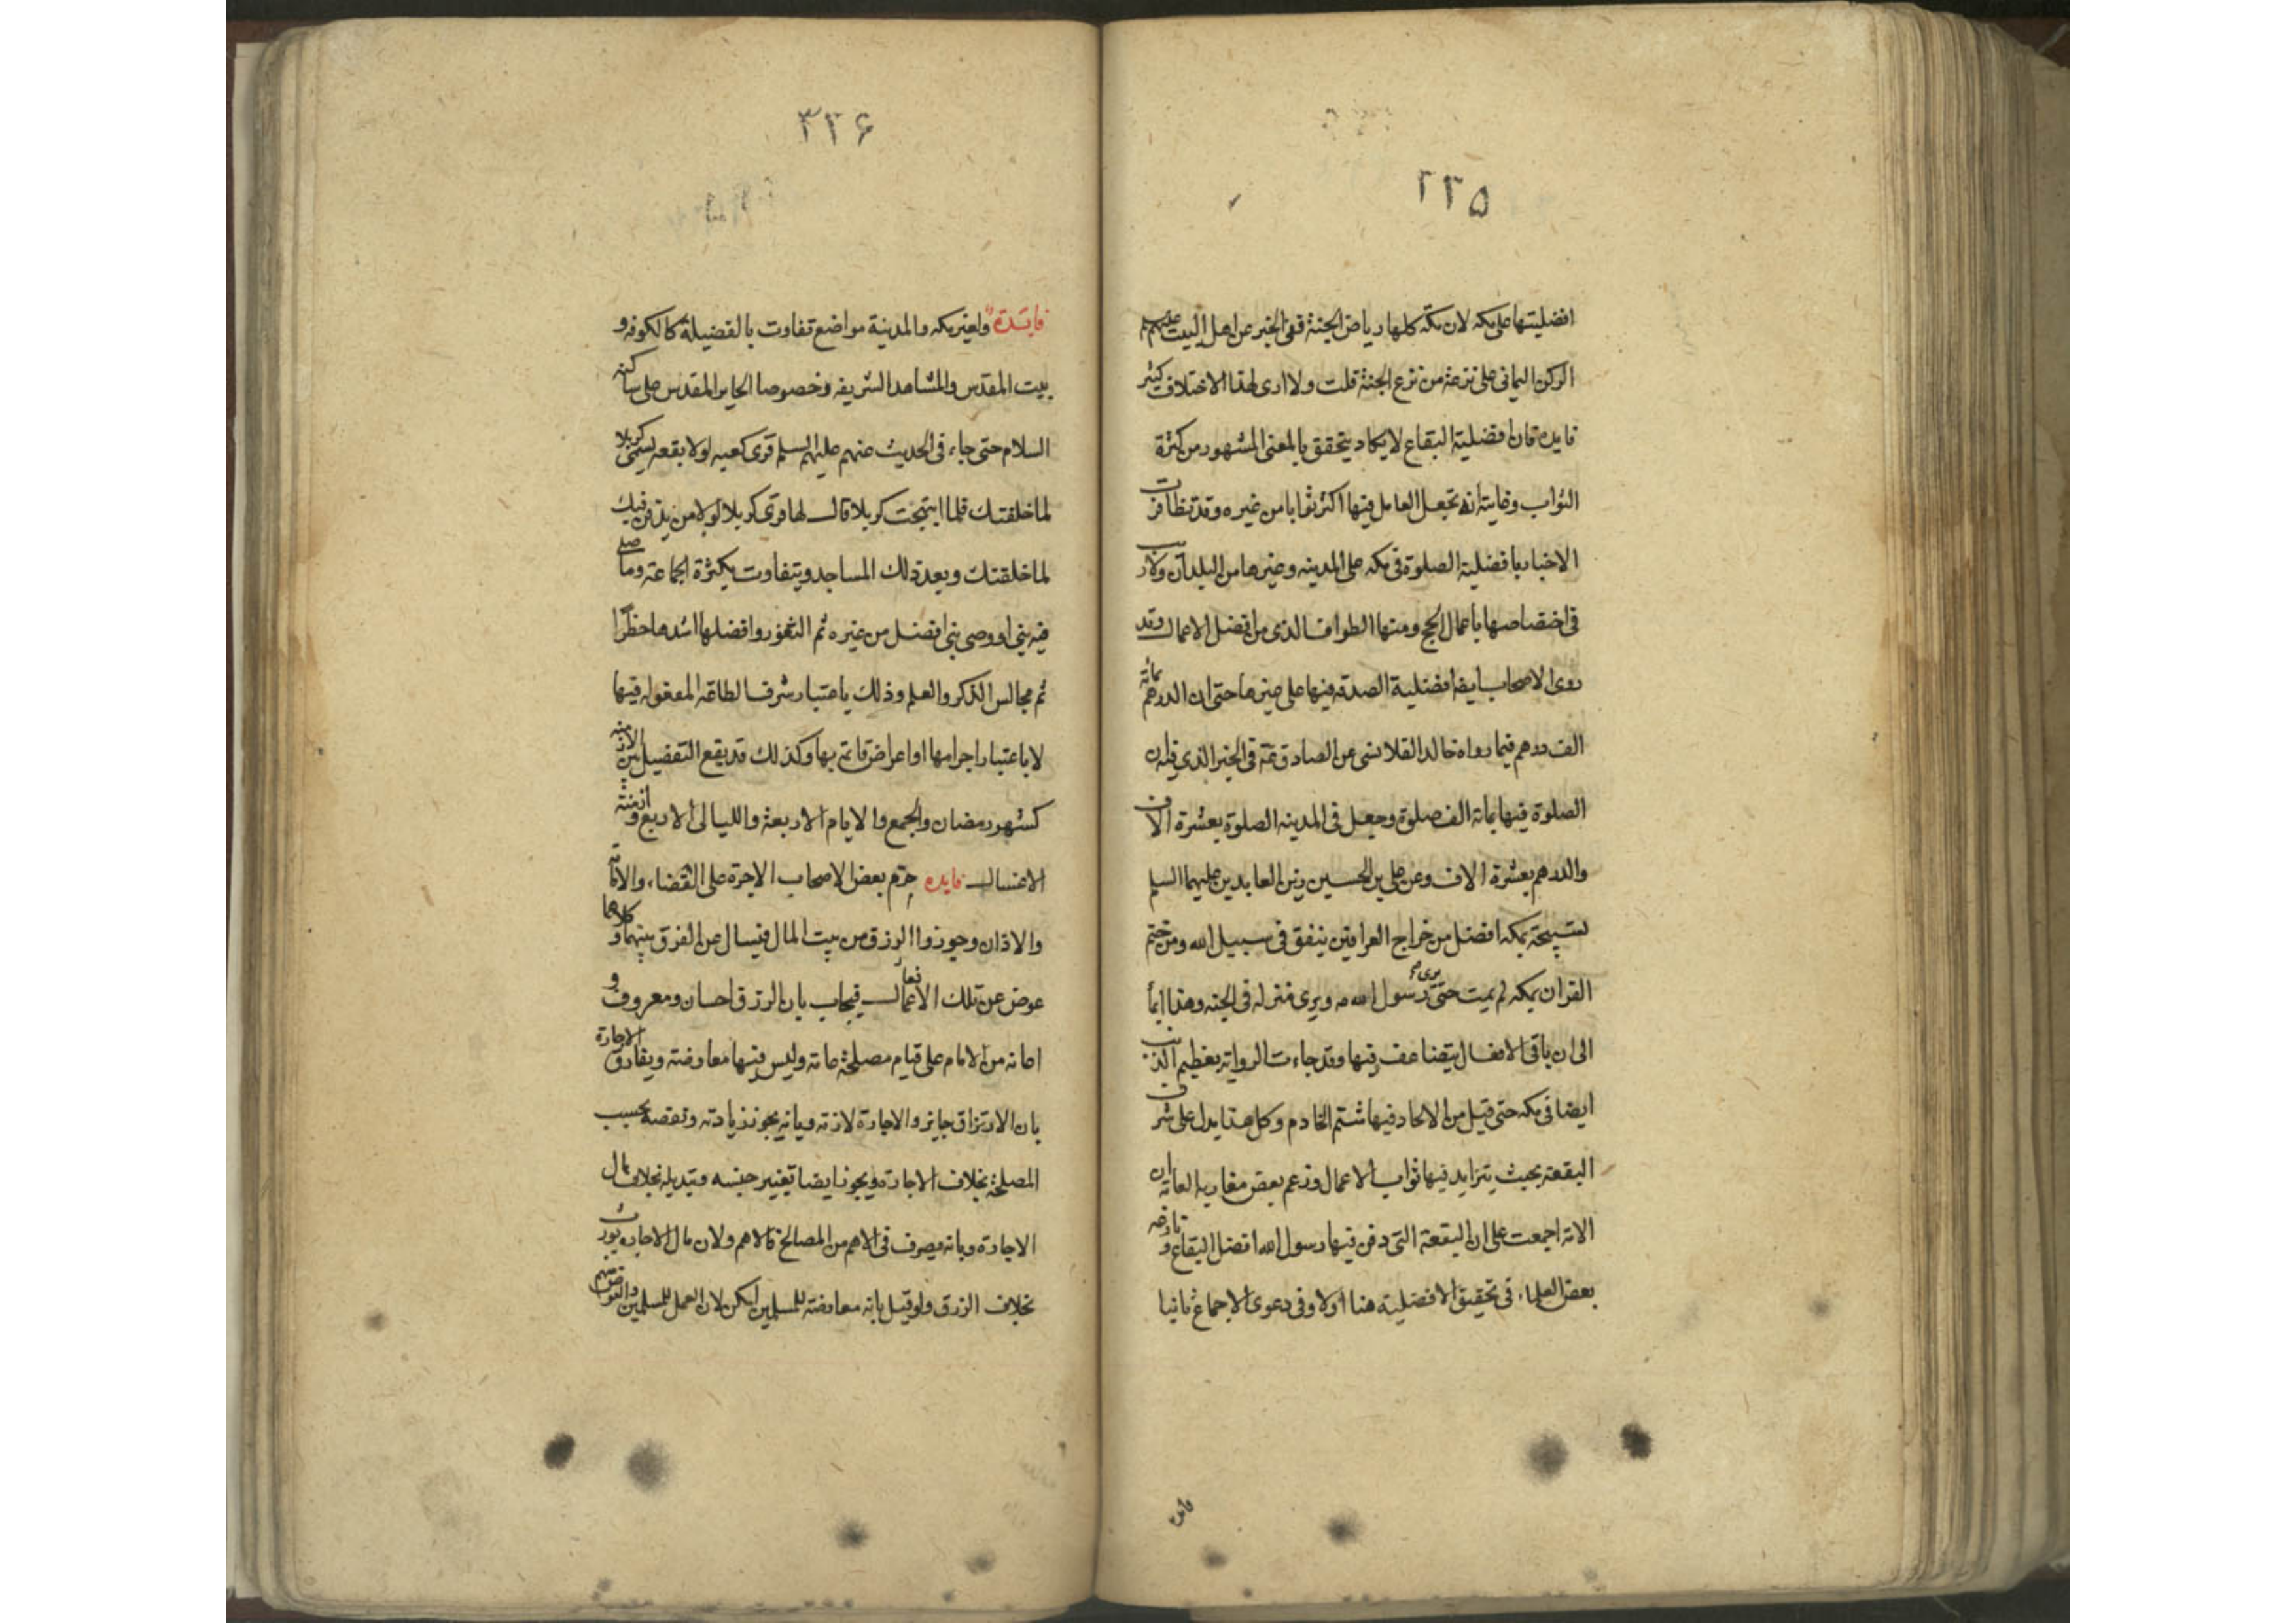 ٢٢٥
افضليتها على مكه لان مكة كلها رياض الجنة ففى الخبر عن اهل البيت عليهم
الركن اليمانى على ترعة من ترع الجنة قلت ولا ارى لهذا الاختلاف كثير
فايده فان افضلية البقاع لا يكاد يتحقق بالمعنى المشهور من كثرة
الثواب وغايته انه تجعل العامل فيها اكثر ثوابا من غيره وقد تظافرت
الاخبار بافضلية الصلوة فى مكه على المدينه وغيرها من البلدان ولا ريب
فى اختصاصها باعمال الحج ومنها الطواف الذى من افضل الاعمال وقد
روى الاصحاب ايضا افضلية الصدقه فيها على غيرها حتى ان الدرهم بمائة
الف درهم فيما رواه خالد القلانسى عن الصادق فى الخبر الذى فيه ان
الصلوة فيها بمائة الف صلوة وجعل فى المدينه الصلوة بعشرة الاف
والدرهم بعشرة الاف وعن على بن الحسين زين العابدين عليهما السلم
تسبيحة بمكه افضل من خراج العراقين ينفق فى سبيل الله ومن ختم
القران بمكه لم يمت حتى يرى رسول الله ص ويرى منزله فى الجنه وهذا ايماء
الى ان باقى الافعال يتضاعف فيها وقد جاءت الرواية بتعظيم الذنب
ايضا فى مكه حتى قيل من الالحاد فيها شتم الخادم وكل هذا يدل على شرف
البقعة بحيث يتزايد فيها ثواب الاعمال وزعم بعض مغاربة العامة ان
الامة اجمعت على ان البقعة التى دفن فيها رسول الله افضل البقاع ونازعه
بعض العلماء فى تحقيق الافضلية هنا اولا وفى دعوى الاجماع ثانيا
فايده
٣٢۶
فايدة ولغير مكه والمدينة مواضع تفاوت بالفضيلة كالكوفه و
بيت المقدس والمشاهد الشريفه وخصوصا الحاير المقدس على ساكنه
السلام حتى جاء فى الحديث عنهم عليهم السلم قرى كعبه لولا بقعة تسمى كربلا
لما خلقتك فلما ابتهجت كربلا قال لها قرى كربلا لولا من يدفن فيك
لما خلقتك وبعد ذلك المساجد ويتفاوت بكثرة الجماعة وما صلى
فيه نبى او وصى نبى افضل من غيره ثم الثغور وافضلها اشدها خطرا
ثم مجالس الذكر والعلم وذلك باعتبار شرف الطاقه المعقوله فيها
لا باعتبار اجرامها او اعراض قائمة بها وكذلك قد يقع التفضيل بين الازمنه
كشهر رمضان والجمع والايام الاربعة والليالى الاربع وازمنة
الاغتسال فايده حرم بعض الاصحاب الاجرة على القضاء والاقامة
والاذان وجوزوا الرزق من بيت المال فيسال عن الفرق بينهما وكلاهما
عوض عن تلك الافعال فيجاب بان الرزق احسان ومعروف و
اعانه من الامام على قيام مصلحة عامة وليس فيها معاوضة ويفارق الاجارة
بان الارتزاق جايز والاجارة لازمة وبانه يجوز زيادته ونقصه بحسب
المصلحة بخلاف الاجارة ويجوز ايضا تغيير جنسه وتبديله بخلاف مال
الاجارة وبانه يصرف فى الاهم من المصالح فالاهم ولان مال الاجاره يورث
بخلاف الرزق ولو قيل بانه معاوضة للمسلمين امكن لان العمل للمسلمين والعوض منهم